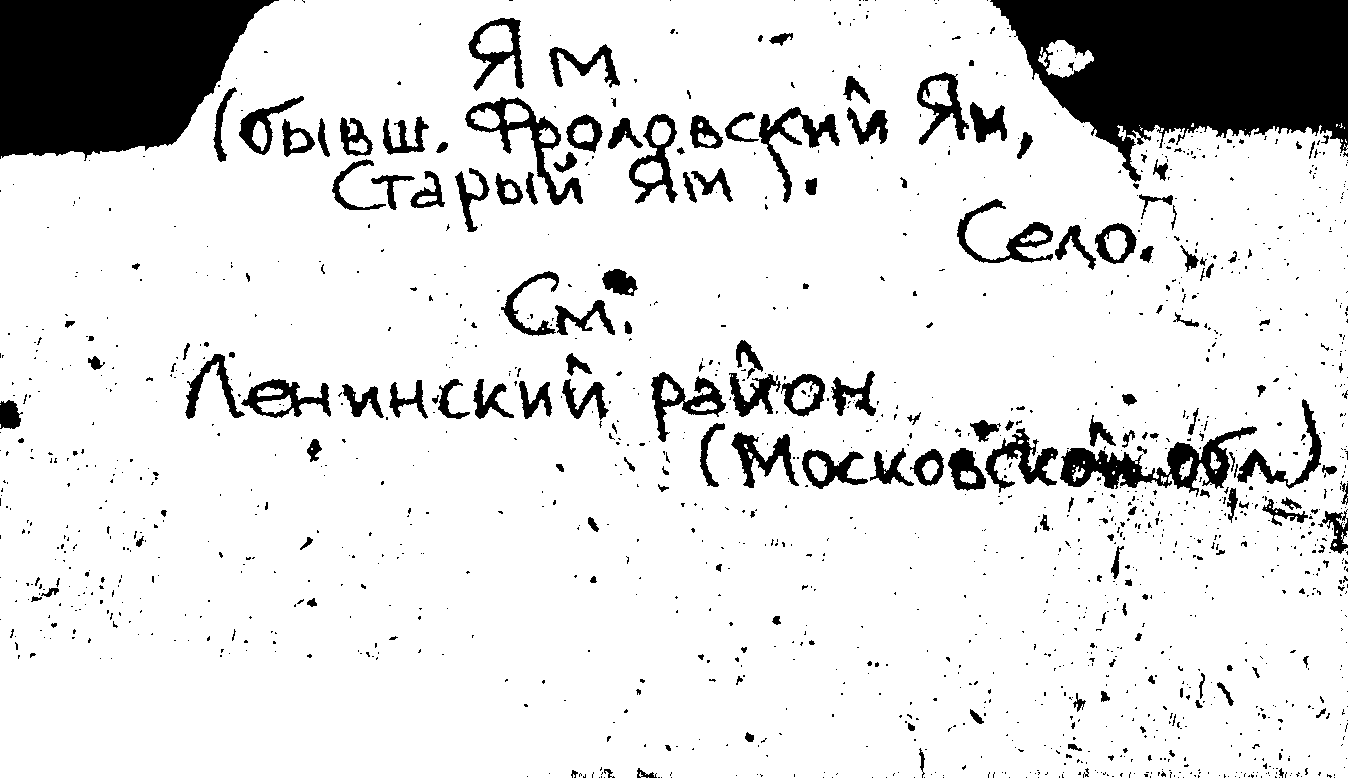 Ям
(бывш. Фроловский Ям,
Старый Ям).
Село.
См.
Ленинский район
(Московской обл.)